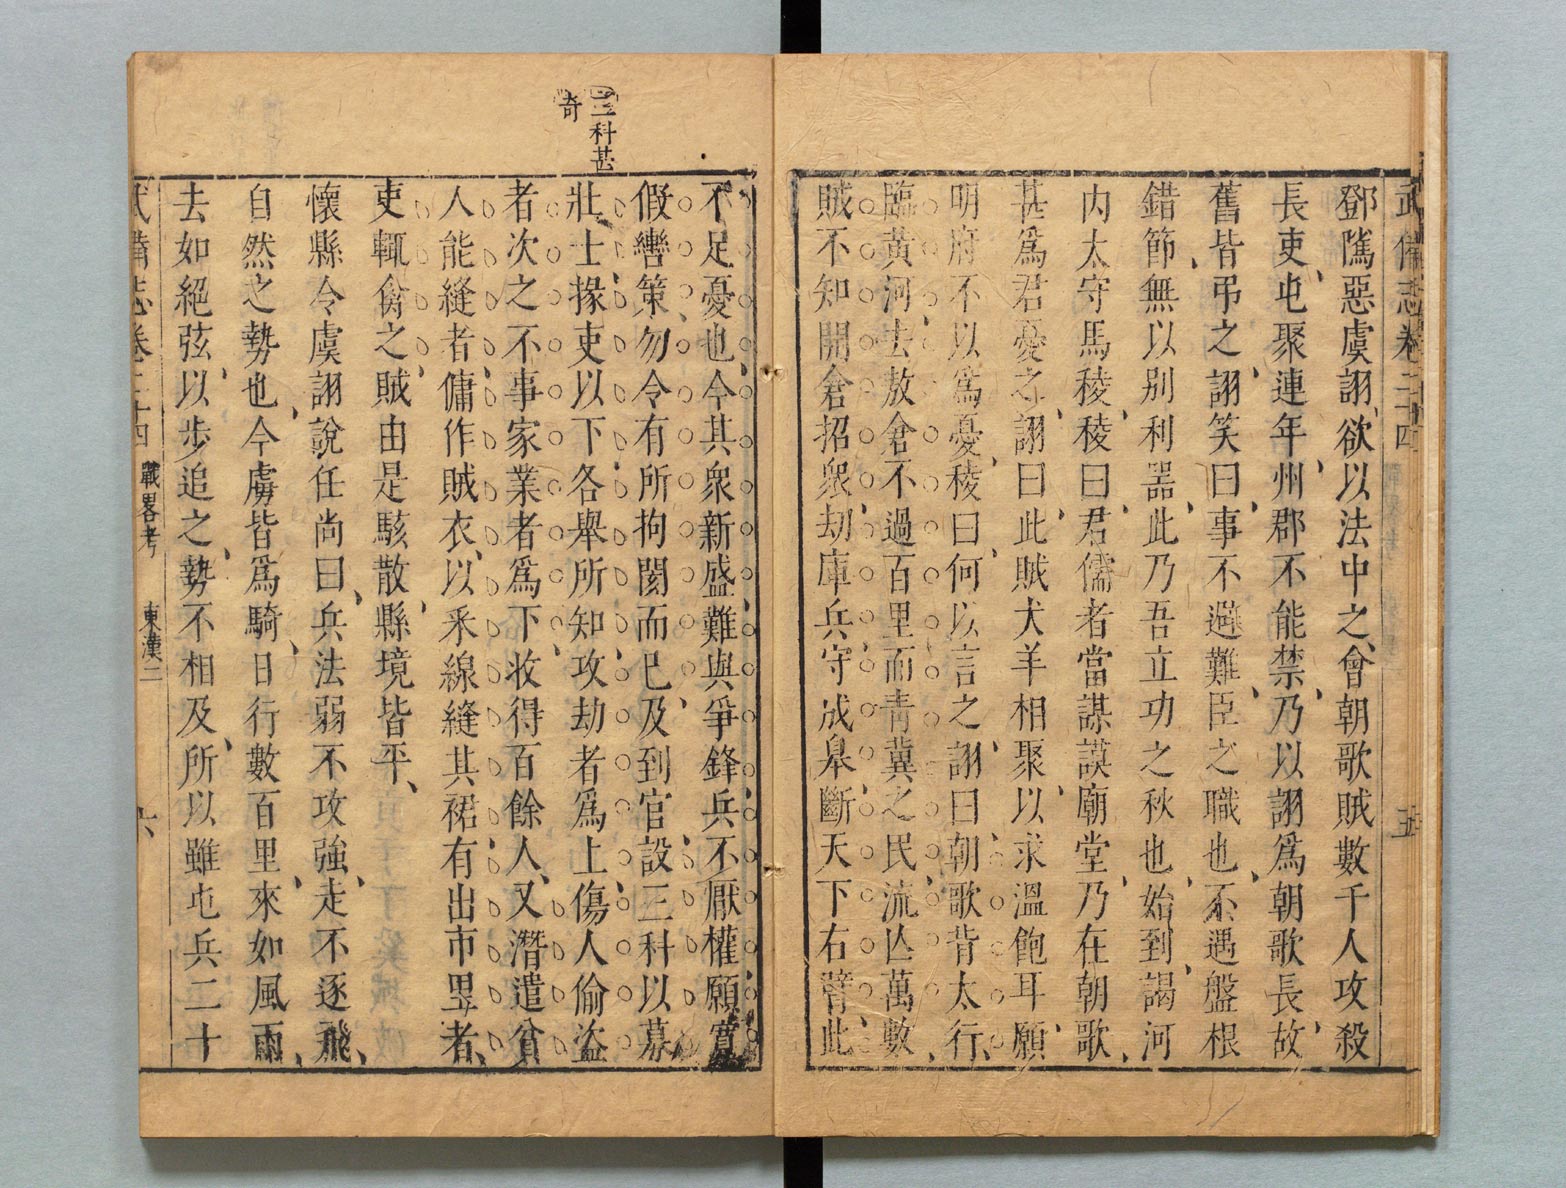 武備志卷二十四 五
鄧隲惡虞詡、欲以法中之、會朝歌賊數千人攻殺
長吏、屯聚連年、州郡不能禁、乃以詡爲朝歌長、故
舊皆弔之、詡笑曰、事不避難、臣之職也、不遇盤根
錯節、無以别利噐、此乃吾立功之秋也、始到、謁河
内太守馬稜、稜曰、君儒者當謀謨廟堂、乃在朝歌、
甚爲君憂之、詡曰、此賊犬羊相聚、以求溫飽耳、願
明府不以爲憂、稜曰、何以言之、詡曰、朝歌背太行、
臨黃河、去敖倉不過百里、而青冀之民流亾萬數、
賊不知開倉招衆、刼庫兵、守成臯、斷天下右臂、此
三科甚
奇
不足憂也、今其衆新盛、難與爭鋒、兵不厭權、願寬
假轡策、勿令有所拘閡而已、及到官、設三科以募
壯士、掾吏以下各舉所知、攻劫者爲上、傷人偷盜
者次之、不事家業者爲下、收得百餘人、又潛遣貧
人能縫者、傭作賊衣、以采線縫其裙、有出市里者、
吏輒禽之、賊由是駭散、縣境皆平、
懷縣令虞詡說任尚曰、兵法弱不攻強、走不逐飛、
自然之勢也、今虜皆爲騎、日行數百里、來如風雨、
去如絕弦、以步追之、勢不相及、所以雖屯兵二十
武備志卷二十四 戰畧考 東漢二 六